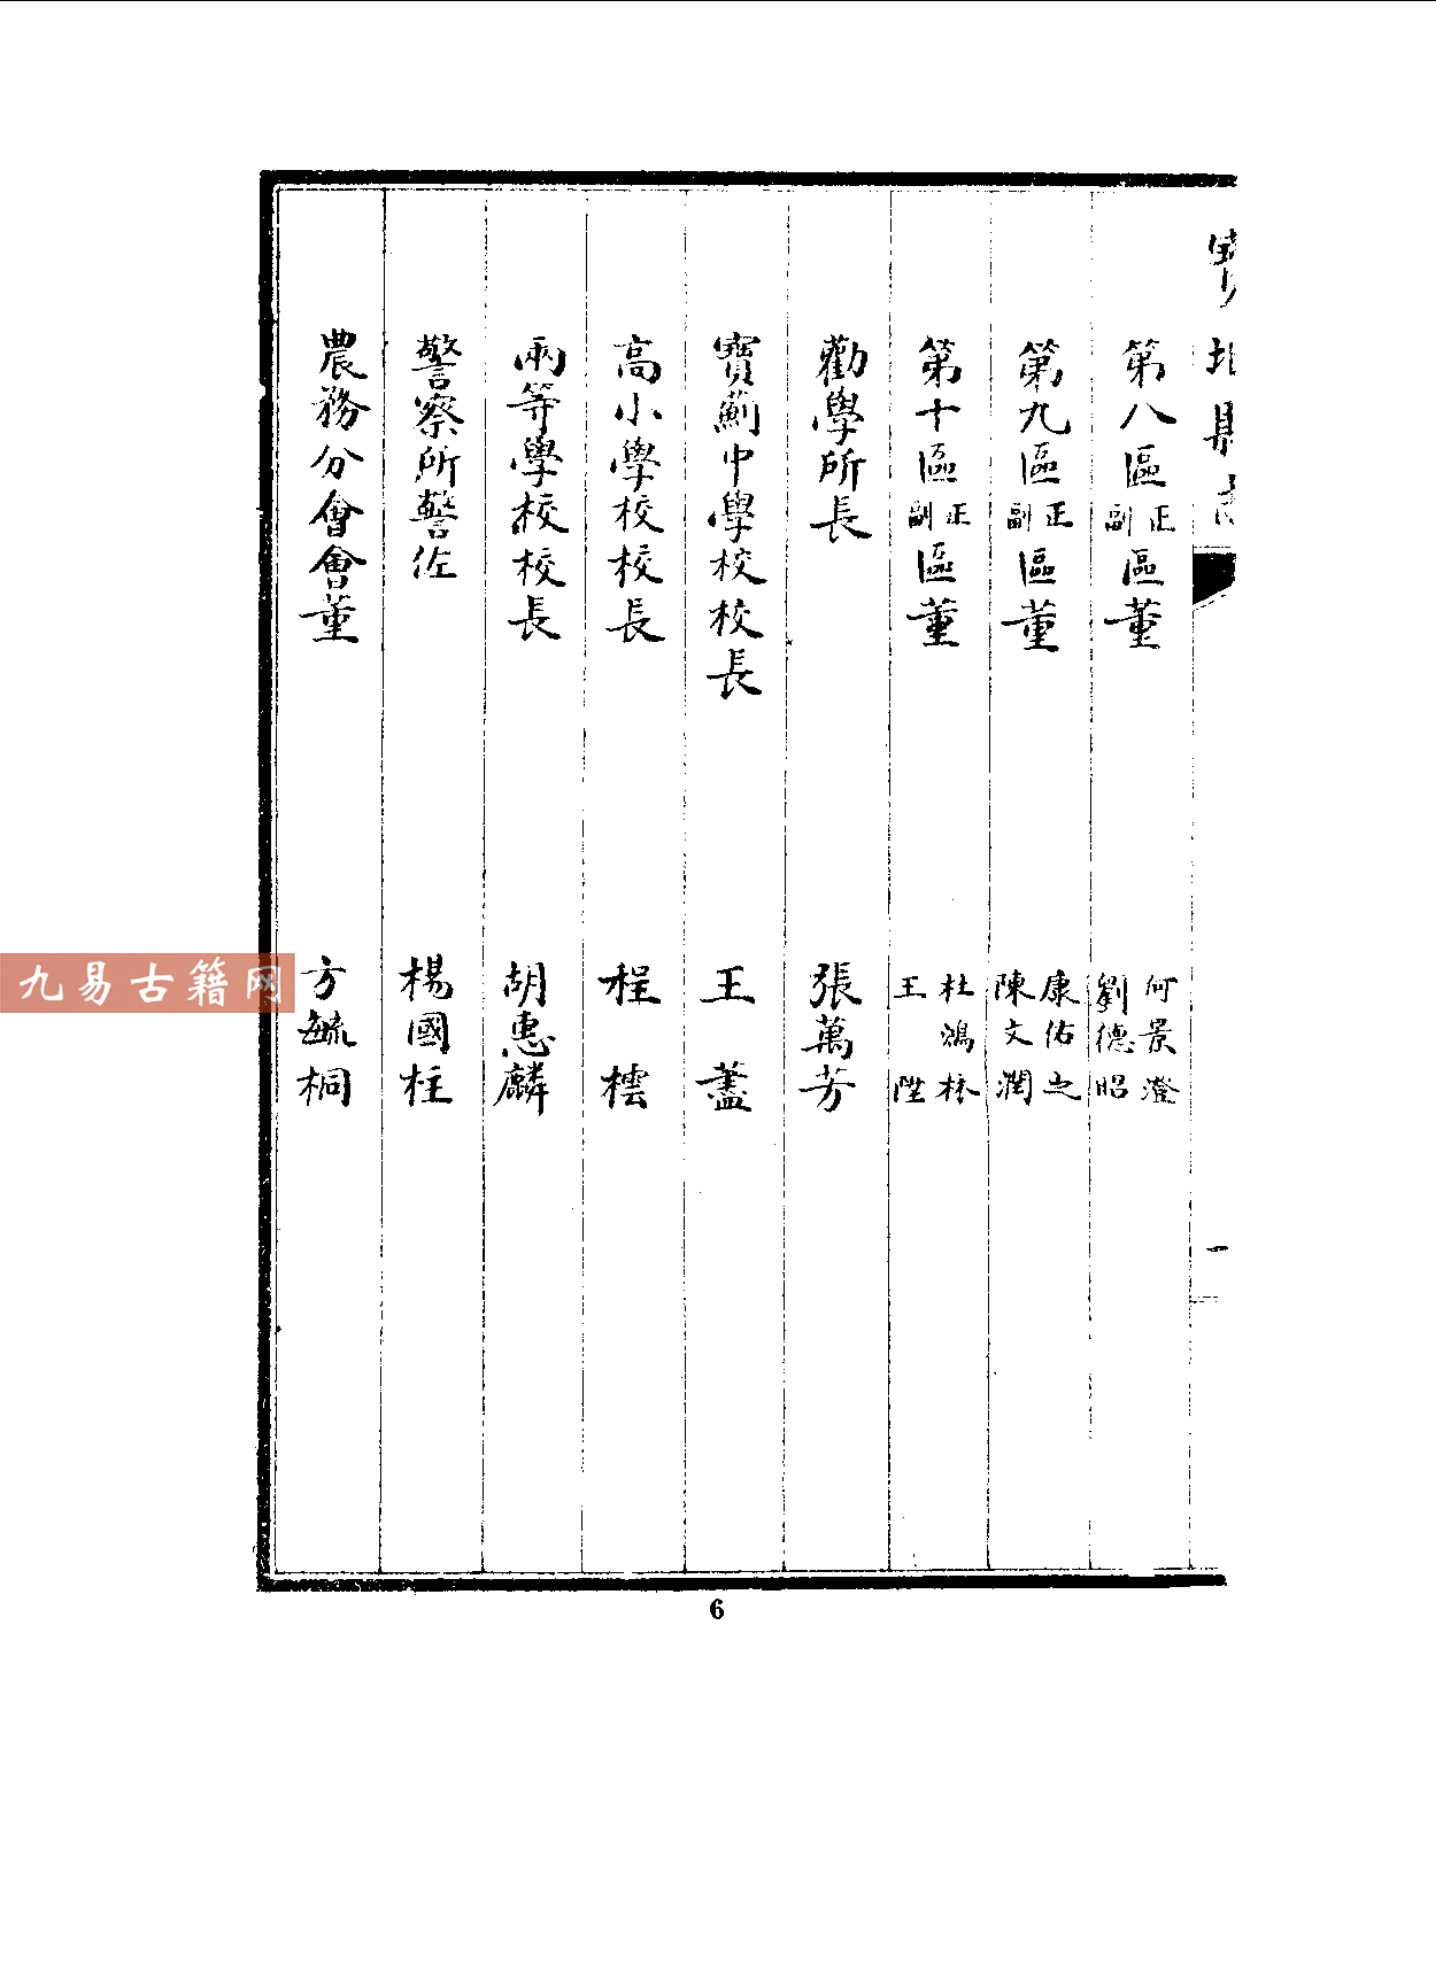 第八區正副區董 何景澄 劉德昭
第九區正副區董 康佑之 陳文潤
第十區正副區董 杜鴻林 王陞
勸學所長 張萬芳
寶薊中學校校長 王藎
高小學校校長 程橒
兩等學校校長 胡惠麟
警察所警佐 楊國柱
農務分會會董 方毓桐
一
6
九易古籍网